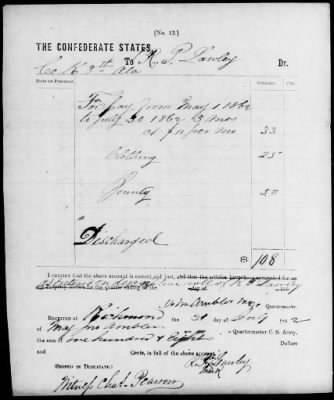 [No. 12.]
THE CONFEDERATE STATES,
To R. S. Lawley Dr.
Co. K 9th Ala
DATE OF PURCHASE. DOLLARS. CTS.
For pay from May 1 1862
to July 30 1862 3 mos
at 11 per mo 33
Clothing 25
Bounty 50
Discharged
$ 108
I CERTIFY that the above account is correct and just,
Quartermaster.
RECEIVED at Richmond the 31 of July 1862
of Maj Jno Ambler Quartermaster C. S. Army,
one hundred & Eight Dollars
and Cents, in full of the above account.
(SIGNED IN DUPLICATE)
Lawley
mark
Witness Chas. Pearson